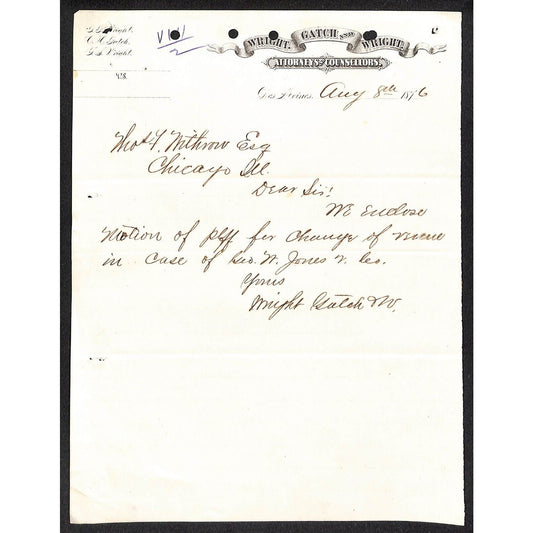 Wright.
C. H. Gatch.
Wright.
VIII/2
WRIGHT. GATCH AND WRIGHT.
ATTORNEYS AND COUNSELLORS.
428.
Des Moines, Aug 8th 1876
Thos F. Withrow Esq
Chicago Ill.
Dear Sir:
We Enclose
Motion of plff for change of venue
in case of Geo. W. Jones v. Co.
Yours
Wright Gatch & W.